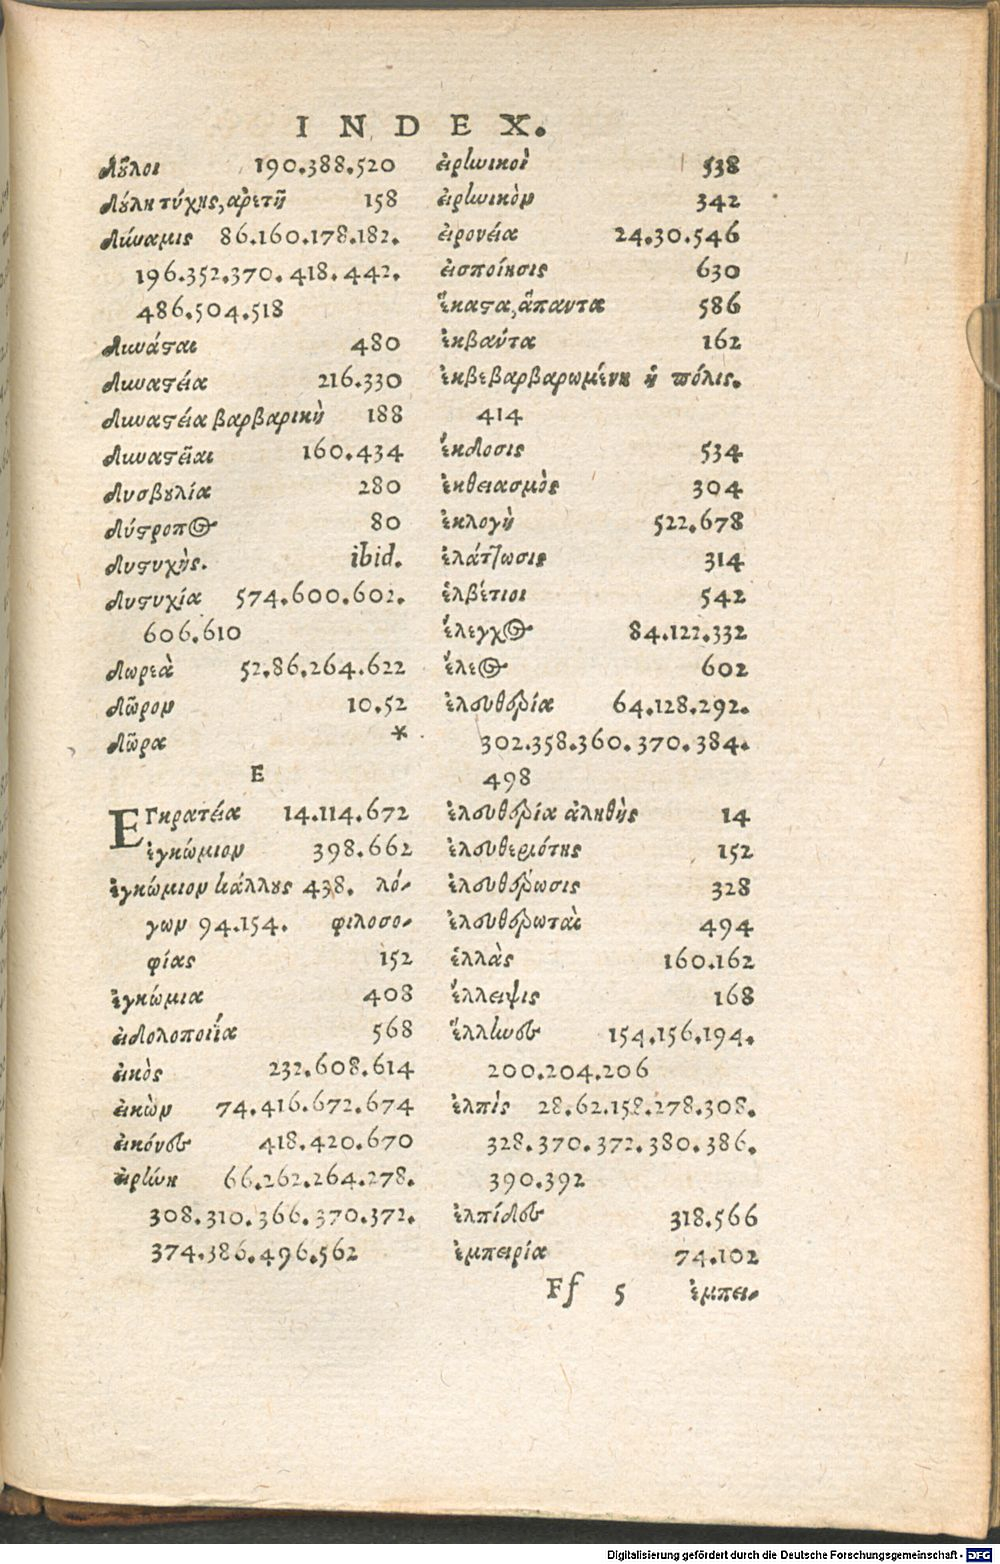 INDEX.
δοῦλοι 190.388.520
δούλη τύχης, ἀρετῆ 158
δύναμις 86.160.178.182.
196.352.370.418.442.
486.504.518
δυνάσαι 480
δυναστεία 216.330
δυναστεία βαρβαρικὴ 188
δυναστεῖαι 160.434
δυσβουλία 280
δύστροπος 80
δυστυχὴς. ibid.
δυστυχία 574.600.602.
606.610
δωρεὰ 52.86.264.622
δῶρον 10.52
δῶρα *
E
ΕΓκρατεία 14.114.672
ἐγκώμιον 398.662
ἐγκώμιον κάλλους 438. λό-
γων 94.154. φιλοσο-
φίας 152
ἐγκώμια 408
εἰδολοποιΐα 568
εἰκὸς 232.608.614
εἰκὼν 74.416.672.674
εἰκόνες 418.420.670
εἰρήνη 66.262.264.278.
308.310.366.370.372.
374.386.496.562
εἰρηνικοὶ 538
εἰρηνικὸν 342
εἰρονεία 24.30.546
εἰσποίησις 630
ἕκαστα, ἅπαντα 586
ἐκβαύτα 162
ἐκβεβαρβαρωμένη ἡ πόλις.
414
ἔκδοσις 534
ἐκθειασμὸς 304
ἐκλογὴ 522.678
ἐλάττωσις 314
ἐλβέτιοι 542
ἔλεγχος 84.122.332
ἔλεος 602
ἐλευθερία 64.128.292.
302.358.360.370.384.
498
ἐλευθερία ἀληθὴς 14
ἐλευθεριότης 152
ἐλευθέρωσις 328
ἐλευθερωταὶ 494
ἑλλὰς 160.162
ἔλλειψις 168
ἕλληνες 154.156.194.
200.204.206
ἐλπὶς 28.62.158.278.308.
328.370.372.380.386.
390.392
ἐλπίδες 318.566
ἐμπειρία 74.102
Ff 5 ἐμπει-
Digitalisierung gefördert durch die Deutsche Forschungsgemeinschaft - DFG